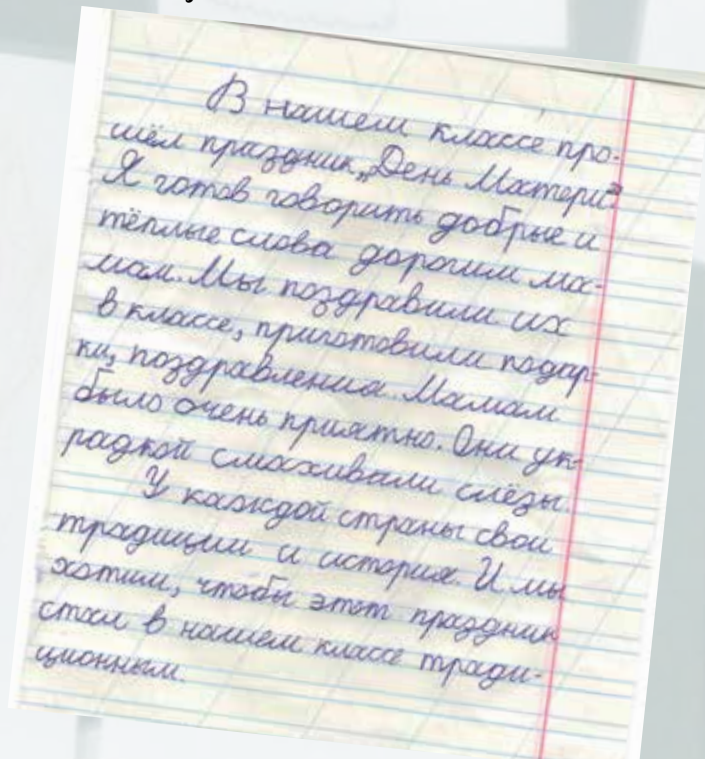 В нашем классе про-
шёл праздник „День Матери“
Я готов говорить добрые и
тёплые слова дорогим ма-
мам. Мы поздравили их
в классе, приготовили подар-
ки, поздравления. Мамам
было очень приятно. Они ук-
радкой смахивали слёзы.
У каждой страны свои
традиции и история. И мы
хотим, чтобы этот праздник
стал в нашем классе тради-
ционным.